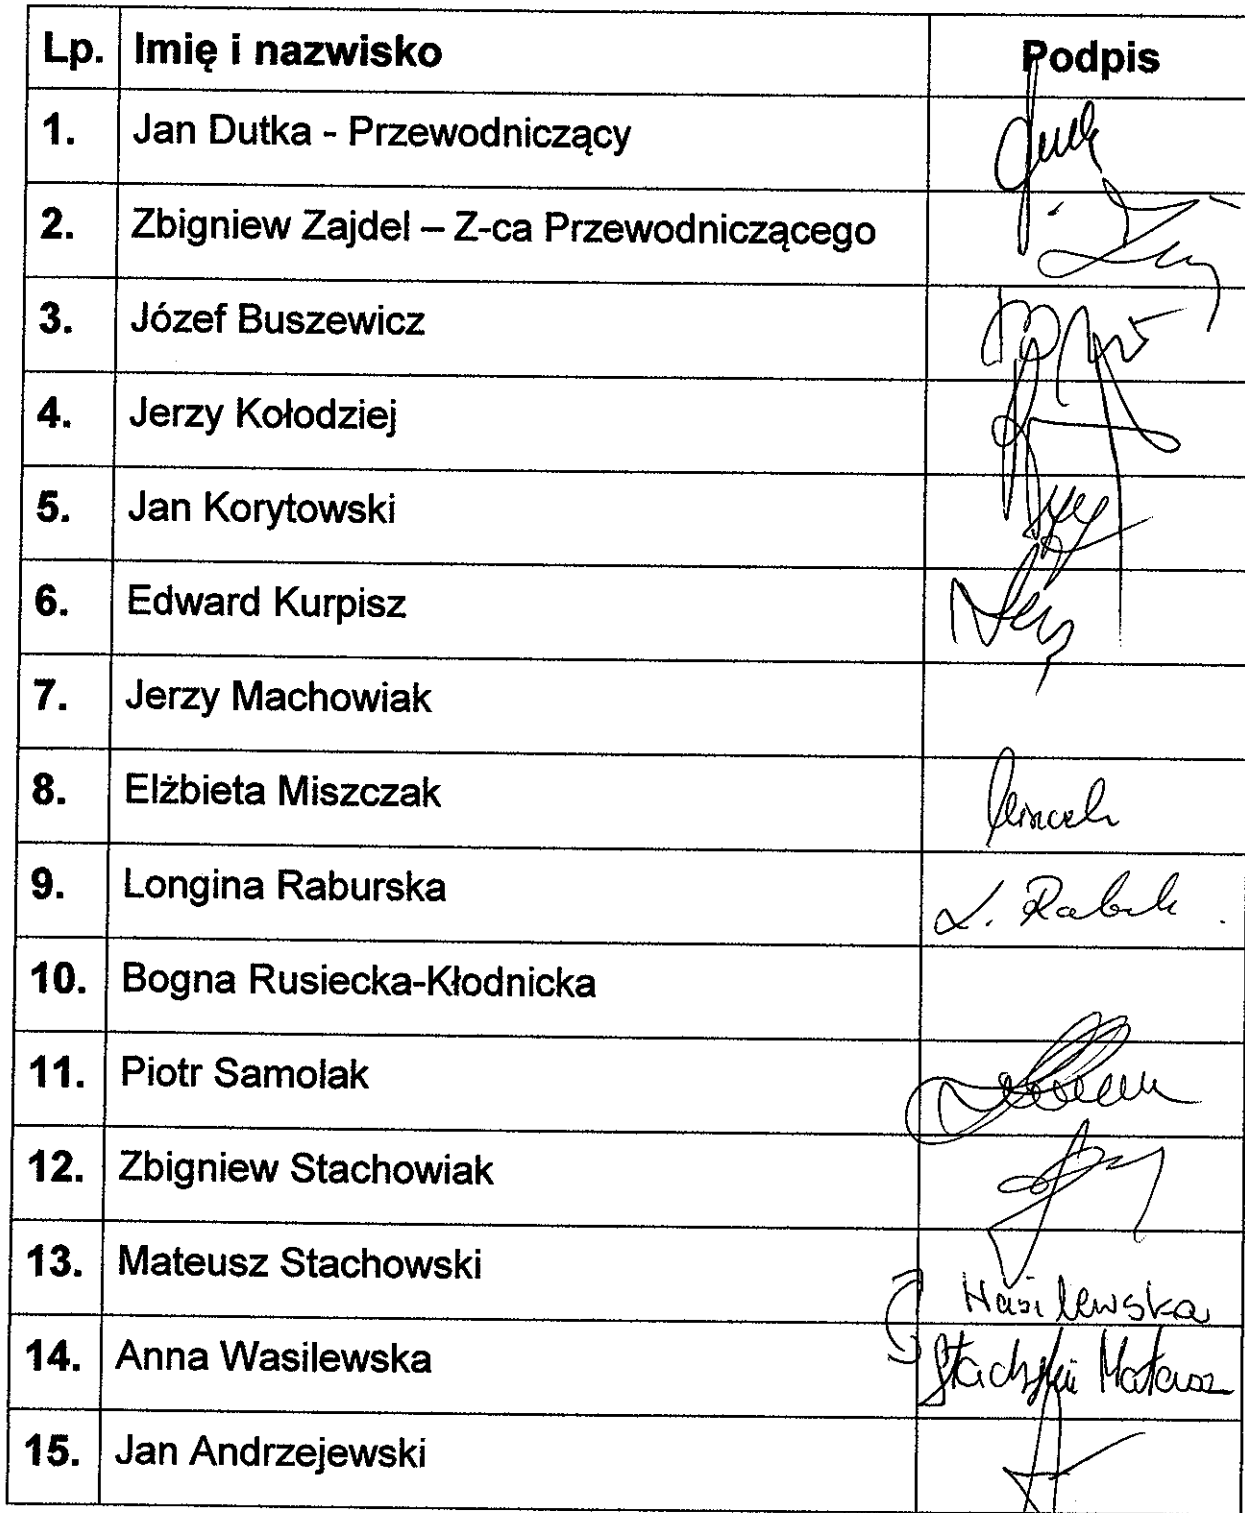 Lp. Imię i nazwisko Podpis
1. Jan Dutka - Przewodniczący
2. Zbigniew Zajdel – Z-ca Przewodniczącego
3. Józef Buszewicz
4. Jerzy Kołodziej
5. Jan Korytowski
6. Edward Kurpisz
7. Jerzy Machowiak
8. Elżbieta Miszczak
9. Longina Raburska L.
10. Bogna Rusiecka-Kłodnicka
11. Piotr Samolak
12. Zbigniew Stachowiak
13. Mateusz Stachowski Wasilewska
14. Anna Wasilewska Stachowski Mateusz
15. Jan Andrzejewski